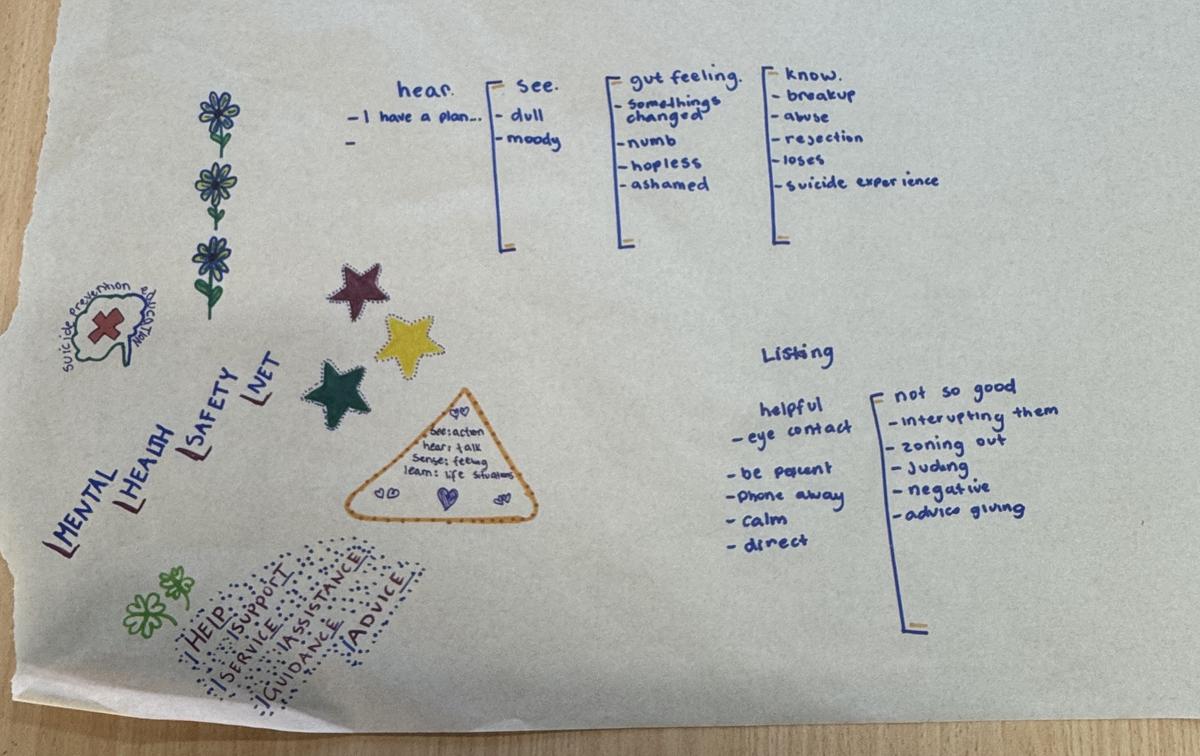 hear.
- I have a plan...
-
see.
- dull
- moody
gut feeling.
- somethings
changed
- numb
- hopless
- ashamed
know.
- breakup
- abuse
- rejection
- loses
- suicide experience
suicide prevention
EDUCATION
MENTAL
HEALTH
SAFETY
NET
see: action
hear: talk
Sense: feeling
learn: life situations
HELP
SUPPORT
SERVICE
ASSISTANCE
GUIDANCE
ADVICE
Listing
helpful
- eye contact
- be pesent
- phone away
- calm
- direct
not so good
- interupting them
- zoning out
- Juding
- negative
- advice giving